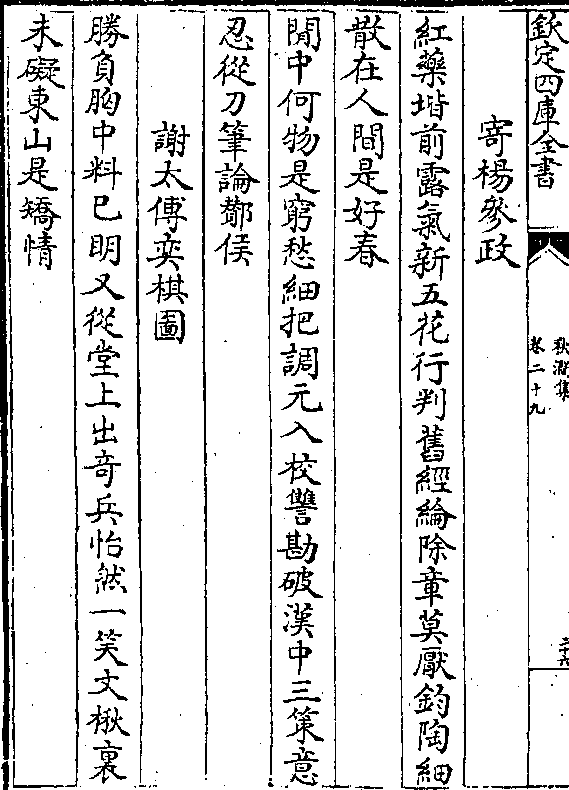 欽定四庫全書
秋澗集
卷二十九
二十六
寄楊參政
紅藥堦前露氣新五花行判舊經綸除章莫厭鈞陶細
散在人間是好春
閒中何物是窮愁細把調元入校讐勘破漢中三策意
忍從刀筆論酇侯
謝太傅奕棋圖
勝負胸中料已明又從堂上出奇兵怡然一笑文楸裏
未礙東山是矯情